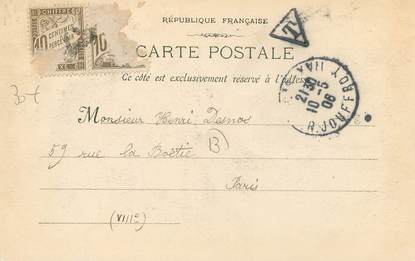 RÉPUBLIQUE FRANÇAISE
CARTE POSTALE
Ce côté est exclusivement réservé à l'adresse
CHIFFRE
10
CENTIMES
À PERCEVOIR
T
PARIS XVII
21 30
10 - 5
06
R. JOUFFROY
Monsieur Henri Desmos
59 rue la Boëtie
B
Paris
(VIIIe)